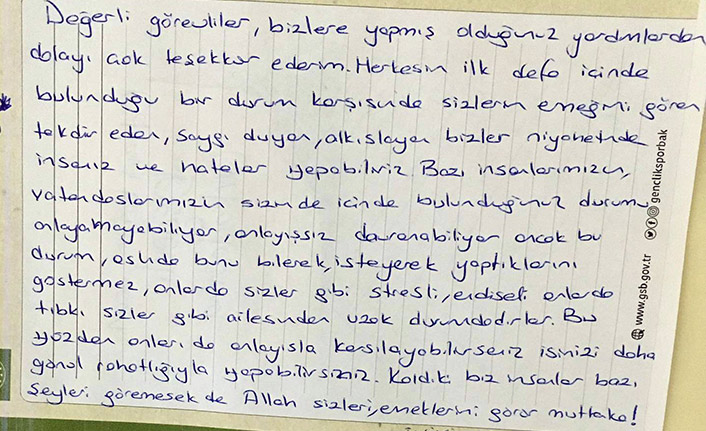 Değerli görevliler, bizlere yapmış olduğunuz yardımlardan
dolayı çok teşekkür ederim. Herkesin ilk defa içinde
bulunduğu bir durum karşısında sizlerin emeğini gören
takdir eden, saygı duyan, alkışlayan bizler nihayetinde
insanız ve hatalar yapabiliriz. Bazı insanlarımızın,
vatandaşlarımızın sizinde içinde bulunduğunuz durumu
anlayamayabiliyor, anlayışsız davranabiliyor ancak bu
durum, aslında bunu bilerek, isteyerek yaptıklarını
göstermez, onlarda sizler gibi stresli, endişeli onlarda
tıbkı sizler gibi ailesinden uzak durumdadırlar. Bu
yüzden onları da anlayışla karşılayabilirseniz işinizi daha
gönül rahatlığıyla yapabilirsiniz. Kaldıki biz insanlar bazı
şeyleri göremesek de Allah sizleri, emeklerini görür mutlaka!
www.gsb.gov.tr
gencliksporbak